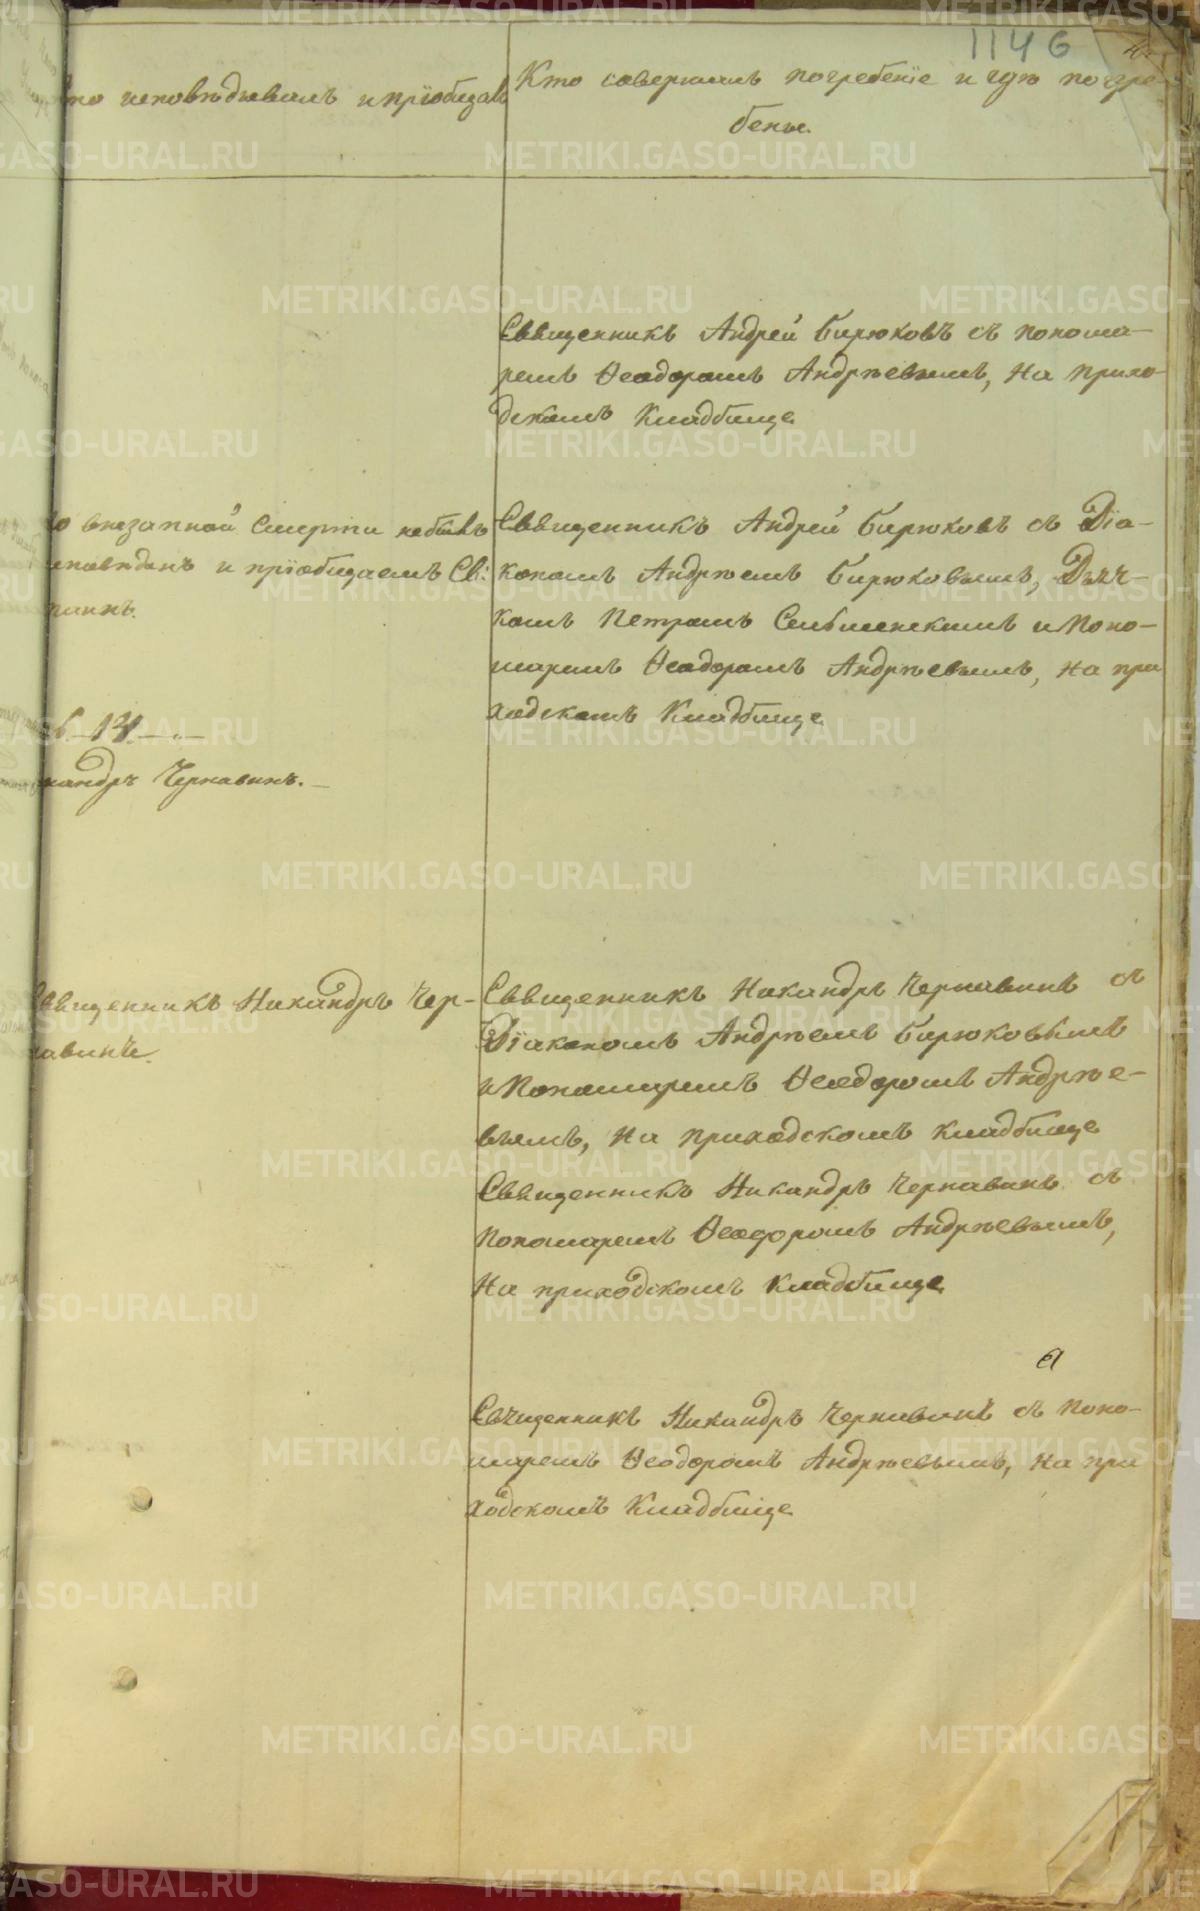 1146
то исповѣдывалъ и пріобщалъ
Кто совершалъ погребеніе и гдѣ погре-
бены.
Священникъ Андрей Бирюковъ съ понома-
ремъ Ѳеодоромъ Андрѣевымъ, на прихо-
дскомъ Кладбище
о внезапной смерти небылъ
исповѣданъ и пріобщаемъ Св:
таинъ.
Священникъ Андрей Бирюковъ съ Діа-
кономъ Андрѣемъ Бирюковымъ, Дьяч-
комъ Петромъ и Поно-
маремъ Ѳеодоромъ Андрѣевымъ, на при
ходскомъ Кладбище
13
кандръ Чернавинъ.
Священникъ Никандръ Чер-
навинъ.
Священникъ Никандръ Чернавинъ съ
Діакономъ Андрѣемъ Бирюковымъ
и Пономаремъ Ѳеодоромъ Андрѣе-
вымъ, на приходскомъ кладбище
Священникъ Никандръ Чернавинъ съ
пономаремъ Ѳеодоромъ Андрѣевымъ,
на приходскомъ кладбище
Священникъ Никандръ Чернавинъ съ Поно-
маремъ Ѳеодоромъ Андрѣевымъ, на при
ходскомъ Кладбище
METRIKI.GASO-URAL.RU